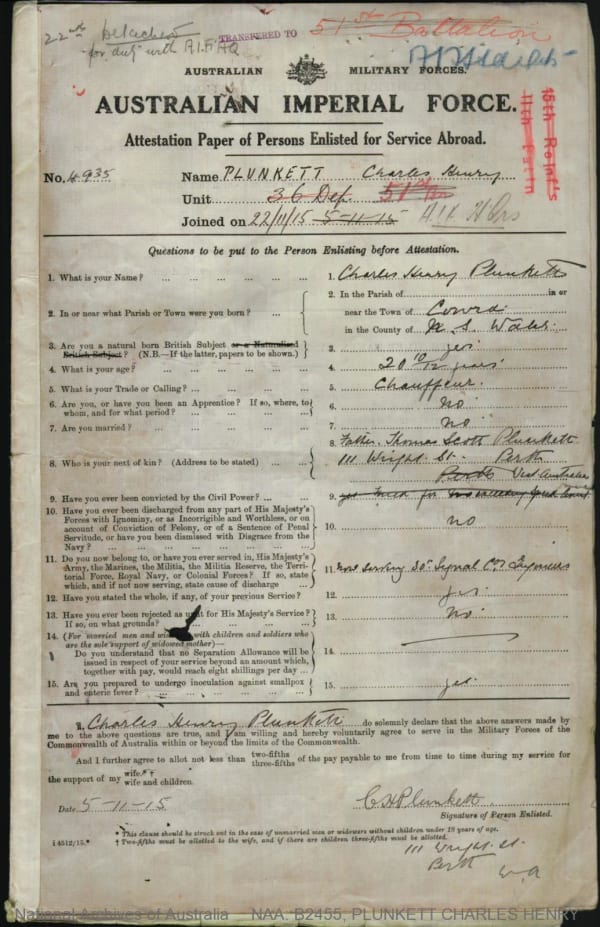 22nd Detached
"for duty" with A.I.F. HQ
TRANSFERED TO 51st Battalion
AUSTRALIAN MILITARY FORCES.
AUSTRALIAN IMPERIAL FORCE.
16th Reinf's
11th Battn
Attestation Paper of Persons Enlisted for Service Abroad.
No. 4935 Name PLUNKETT Charles Henry
Unit 36 Dep. 51st Bn
Joined on 22/11/15 5-11-15
Questions to be put to the Person Enlisting before Attestation.
1. What is your Name? ... 1. Charles Henry Plunkett
2. In or near what Parish or Town were you born? ... 2. In the Parish of in or
near the Town of Cowra
in the County of N. S. Wales
3. Are you a natural born British Subject or a Naturalised
British Subject? (N.B.—If the latter, papers to be shown.) 3. yes
4. What is your age? 4. 20 10/12 years
5. What is your Trade or Calling? ... 5. Chauffeur.
6. Are you, or have you been an Apprentice? If so, where, to
whom, and for what period? ... 6. No
7. Are you married? ... 7. No
8. Who is your next of kin? (Address to be stated) ... 8. Father. Thomas Scott Plunkett
111 Wright St. Perth
West Australia
9. Have you ever been convicted by the Civil Power? ... 9.
10. Have you ever been discharged from any part of His Majesty's
Forces with Ignominy, or as Incorrigible and Worthless, or on
account of Conviction of Felony, or of a Sentence of Penal
Servitude, or have you been dismissed with Disgrace from the
Navy? ... 10. no
11. Do you now belong to, or have you ever served in, His Majesty's
Army, the Marines, the Militia, the Militia Reserve, the Terri-
torial Force, Royal Navy, or Colonial Forces? If so, state
which, and if not now serving, state cause of discharge 11. Now Serving Signal Engineers
12. Have you stated the whole, if any, of your previous Service? 12. yes
13. Have you ever been rejected as unfit for His Majesty's Service?
If so, on what grounds? ... 13. No
14. (For married men and with children and soldiers who
are the sole support of widowed mother)—
Do you understand that no Separation Allowance will be
issued in respect of your service beyond an amount which,
together with pay, would reach eight shillings per day ... 14.
15. Are you prepared to undergo inoculation against smallpox
and enteric fever? ... 15. yes
I, Charles Henry Plunkett do solemnly declare that the above answers made by
me to the above questions are true, and I am willing and hereby voluntarily agree to serve in the Military Forces of the
Commonwealth of Australia within or beyond the limits of the Commonwealth.
And I further agree to allot not less than two-fifths three-fifths of the pay payable to me from time to time during my service for
the support of my wife.*† wife and children.
Date 5-11-15 C H Plunkett
Signature of Person Enlisted.
* This clause should be struck out in the case of unmarried men or widowers without children under 18 years of age.
i 4512/15.* † Two-fifths must be allotted to the wife, and if there are children three-fifths must be allotted.
111 Wright St.
Perth
W A
National Archives of Australia NAA: B2455, PLUNKETT CHARLES HENRY